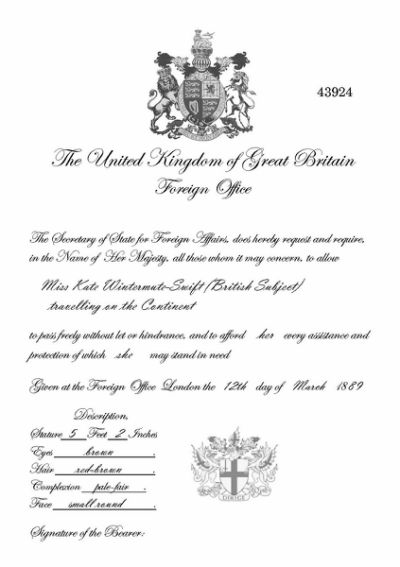 43924
The United Kingdom of Great Britain
Foreign Office
The Secretary of State for Foreign Affairs, does hereby request and require,
in the Name of Her Majesty, all those whom it may concern, to allow
Miss Kate Wintermute-Swift (British Subject)
travelling on the Continent
to pass freely without let or hindrance, and to afford her every assistance and
protection of which she may stand in need
Given at the Foreign Office London the 12th day of March 1889
Description,
Stature 5 Feet 2 Inches
Eyes brown ,
Hair red-brown ,
Complexion pale-fair ,
Face small round ,
DIRIGE
Signature of the Bearer: